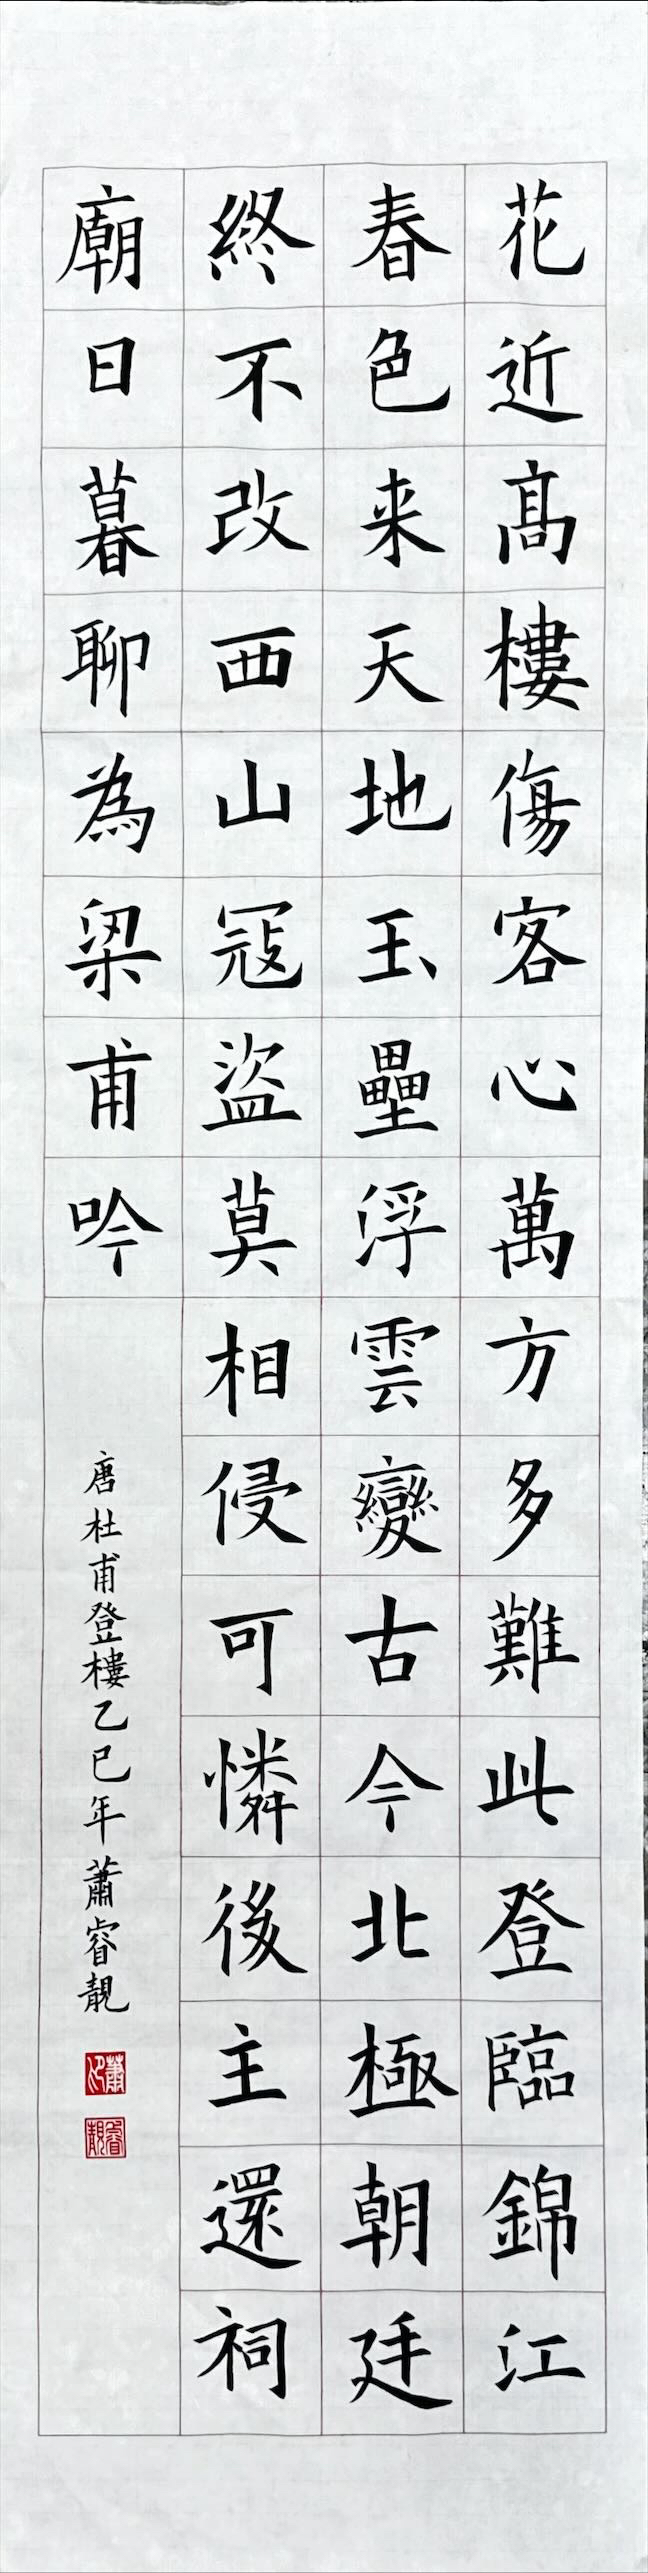 花近髙樓傷客心萬方多難此登臨錦江
春色来天地玉壘浮雲變古今北極朝廷
終不改西山冦盜莫相侵可憐後主還祠
廟日暮聊為梁甫吟
唐杜甫登樓乙巳年蕭睿靚
蕭印
睿靚